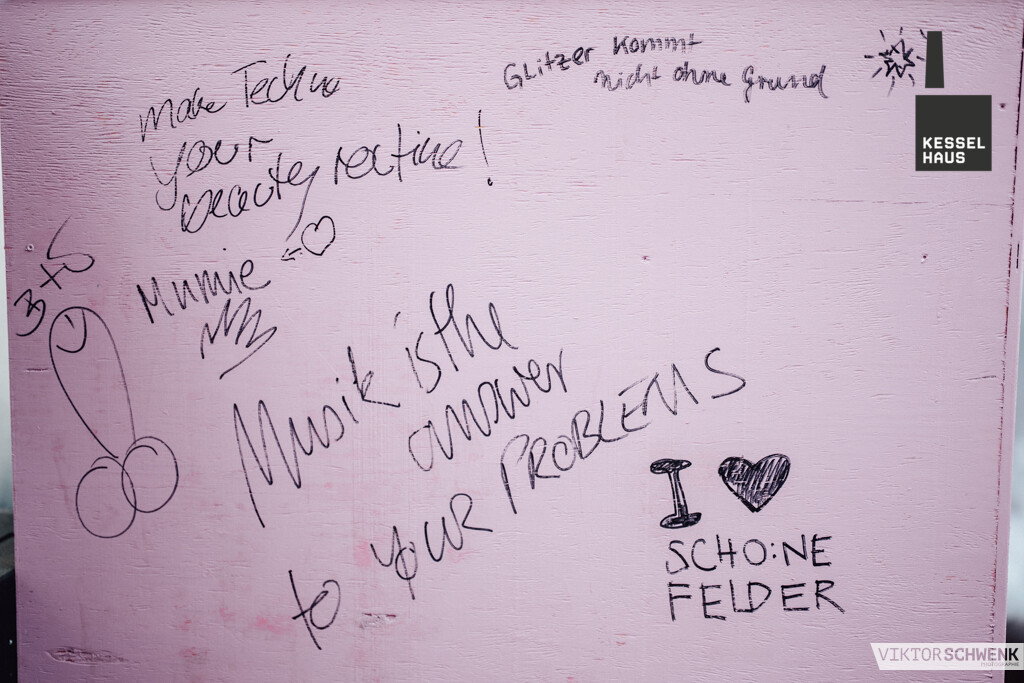 Glitzer kommt
nicht ohne Grund
KESSEL
HAUS
make Techno
your
beauty routine!
Mumie
B+S
Musik is the
answer
to your PROBLEMS
I
SCHO:NE
FELDER
VIKTORSCHWENK